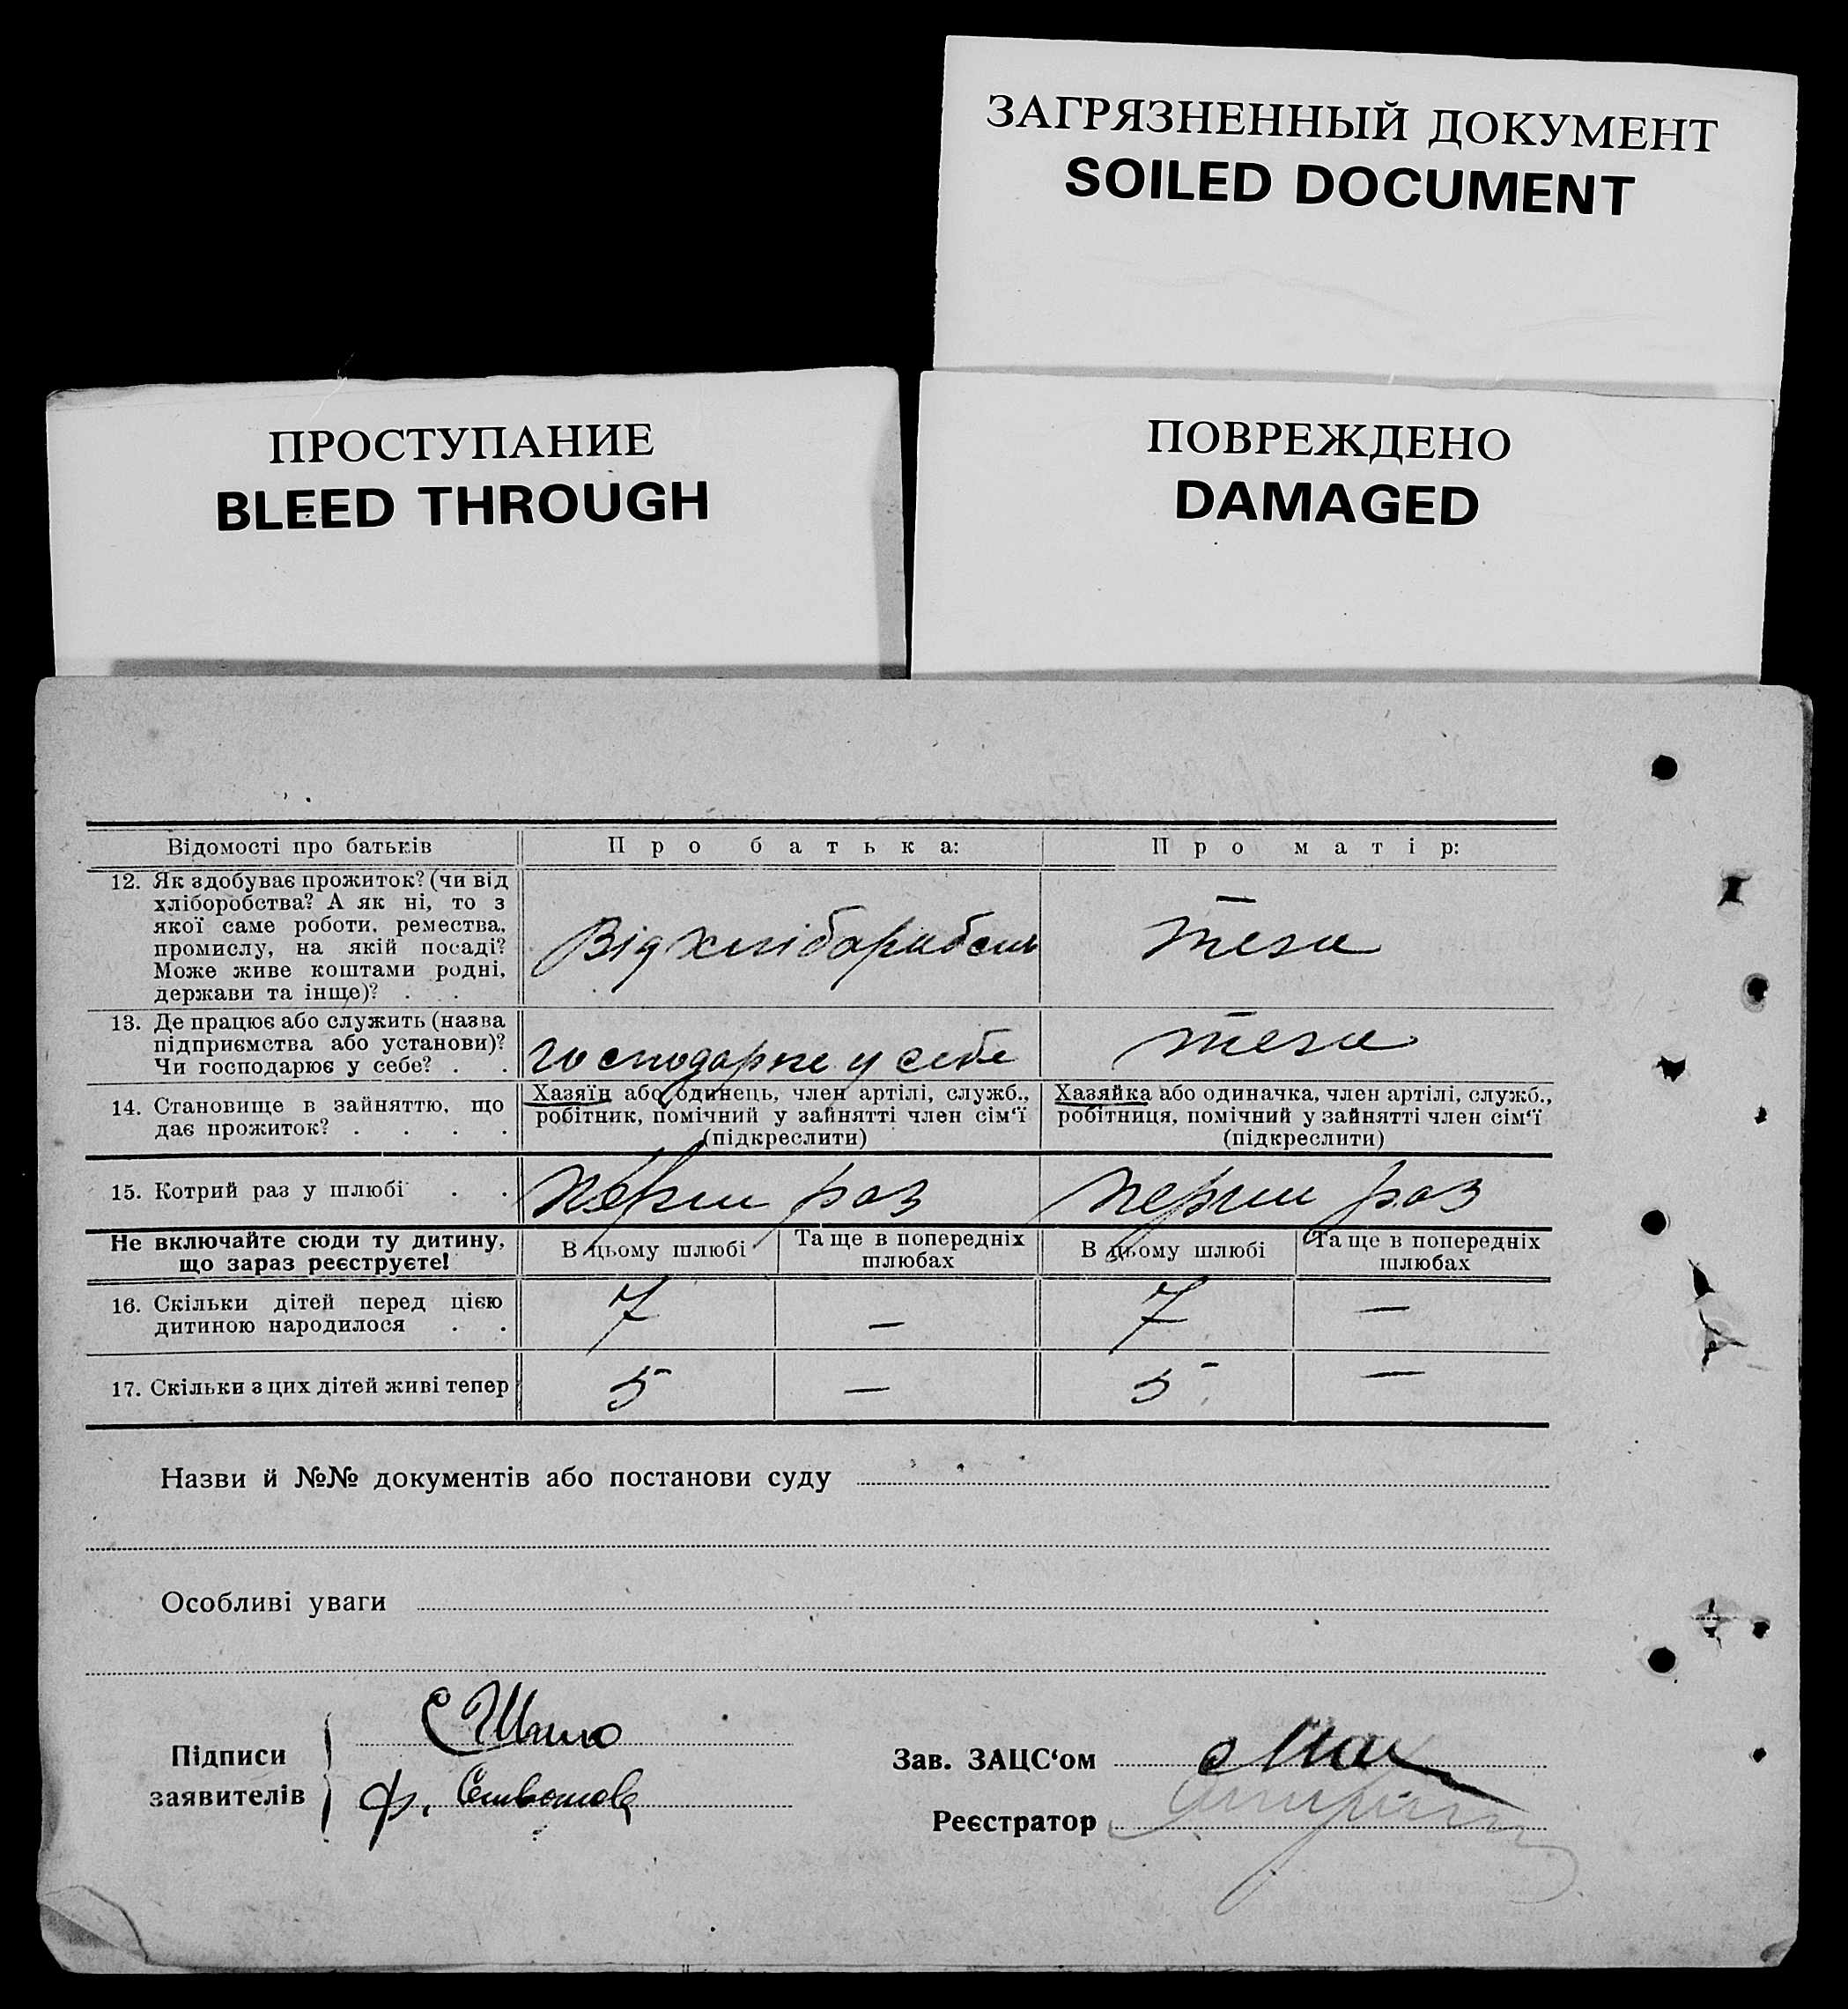 ЗАГРЯЗНЕННЫЙ ДОКУМЕНТ
SOILED DOCUMENT
ПРОСТУПАНИЕ
BLEED THROUGH
ПОВРЕЖДЕНО
DAMAGED
Відомості про батьків
Про батька:
Про матір:
12. Як здобуває прожиток? (чи від
хліборобства? А як ні, то з
якої саме роботи, ремества,
промислу, на якій посаді?
Може живе коштами родні,
держави та інще)? . .
Від
теж
13. Де працює або служить (назва
підприємства або установи)?
Чи господарює у себе? . .
господарює у себе
теж
14. Становище в зайняттю, що
дає прожиток? . . . .
Хазяїн або одинець, член артілі, служб.,
робітник, помічний у зайнятті член сім‘ї
(підкреслити)
Хазяйка або одиначка, член артілі, служб.,
робітниця, помічний у зайнятті член сім‘ї
(підкреслити)
15. Котрий раз у шлюбі . .
перши раз
перши раз
Не включайте сюди ту дитину,
що зараз реєструєте!
В цьому шлюбі
Та ще в попередніх
шлюбах
В цьому шлюбі
Та ще в попередніх
шлюбах
16. Скільки дітей перед цією
дитиною народилося . .
7
—
7
—
17. Скільки з цих дітей живі тепер
5
—
5
—
Назви й №№ документів або постанови суду
Особливі уваги
Підписи
заявителів
Ф.
Зав. ЗАЦС‘ом
Реєстратор